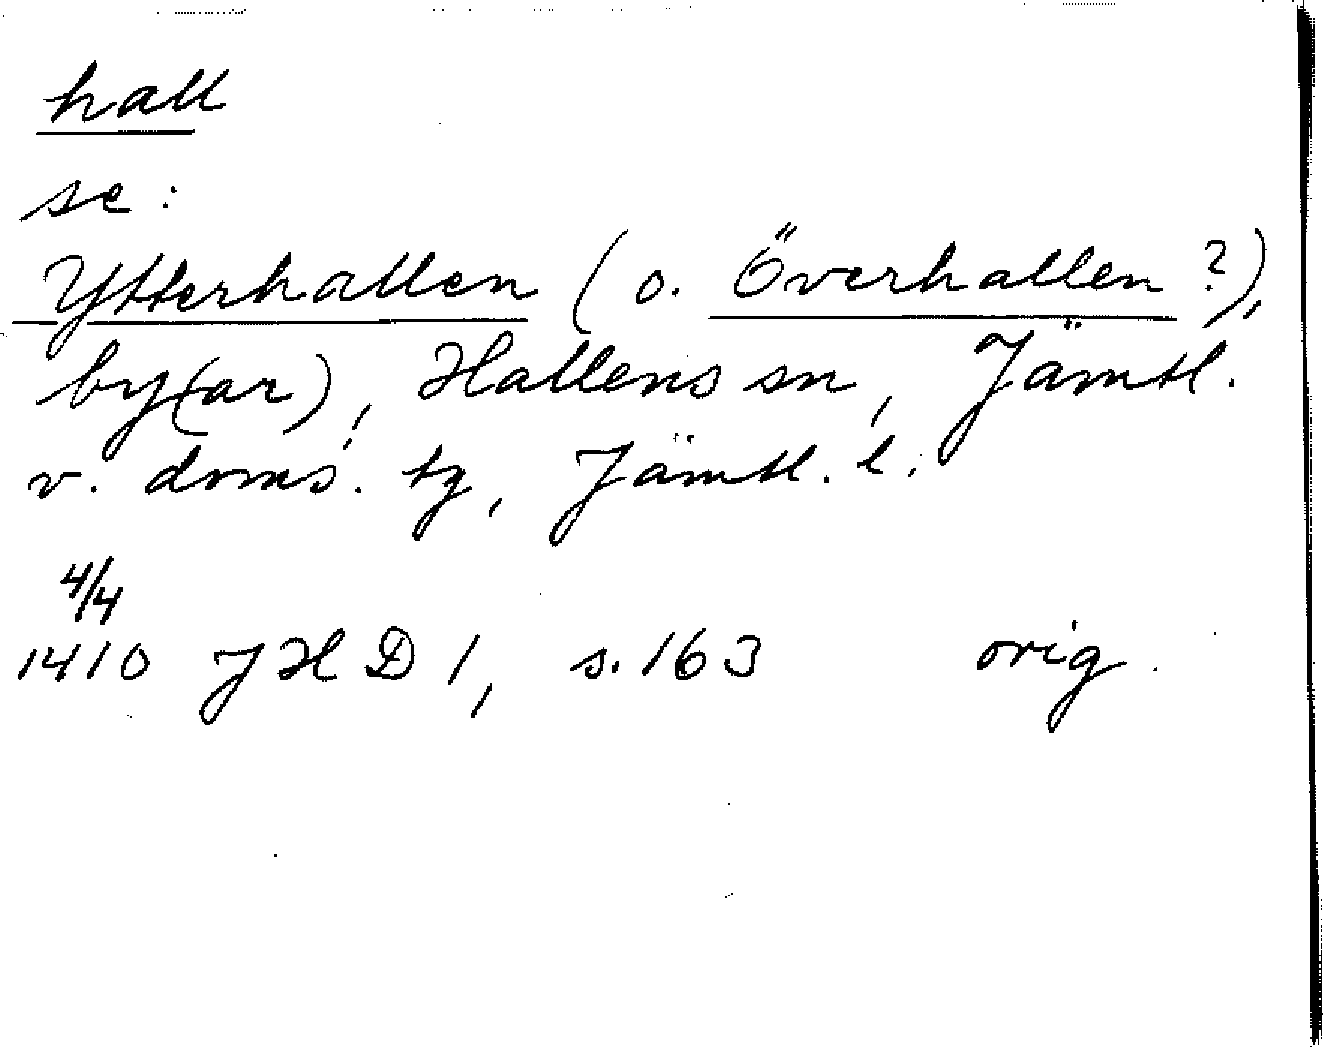 hall
se:
Ytterhallen (o. Överhallen?),
by(ar), Hallens sn, Jämtl.
v. doms. tg, Jämtl. l.
4/4
1410 JHD 1, s. 163 orig.